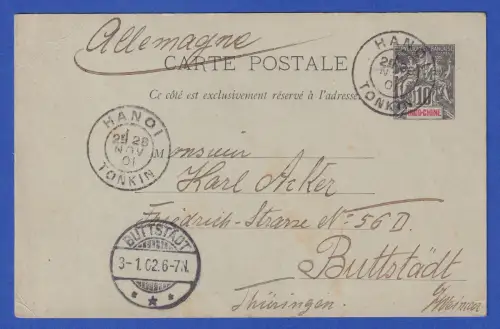 Allemagne
CARTE POSTALE
Ce côté est exclusivement réservé à l'adresse
HANOI
NOV
01
TONKIN
10
INDO-CHINE
HANOI
28
NOV
01
TONKIN
Monsieur
Karl Acker
Friedrich-Strasse No 56 D.
Buttstädt
Thüringen.
BUTTSTÄDT
3-1.02.6-7N.